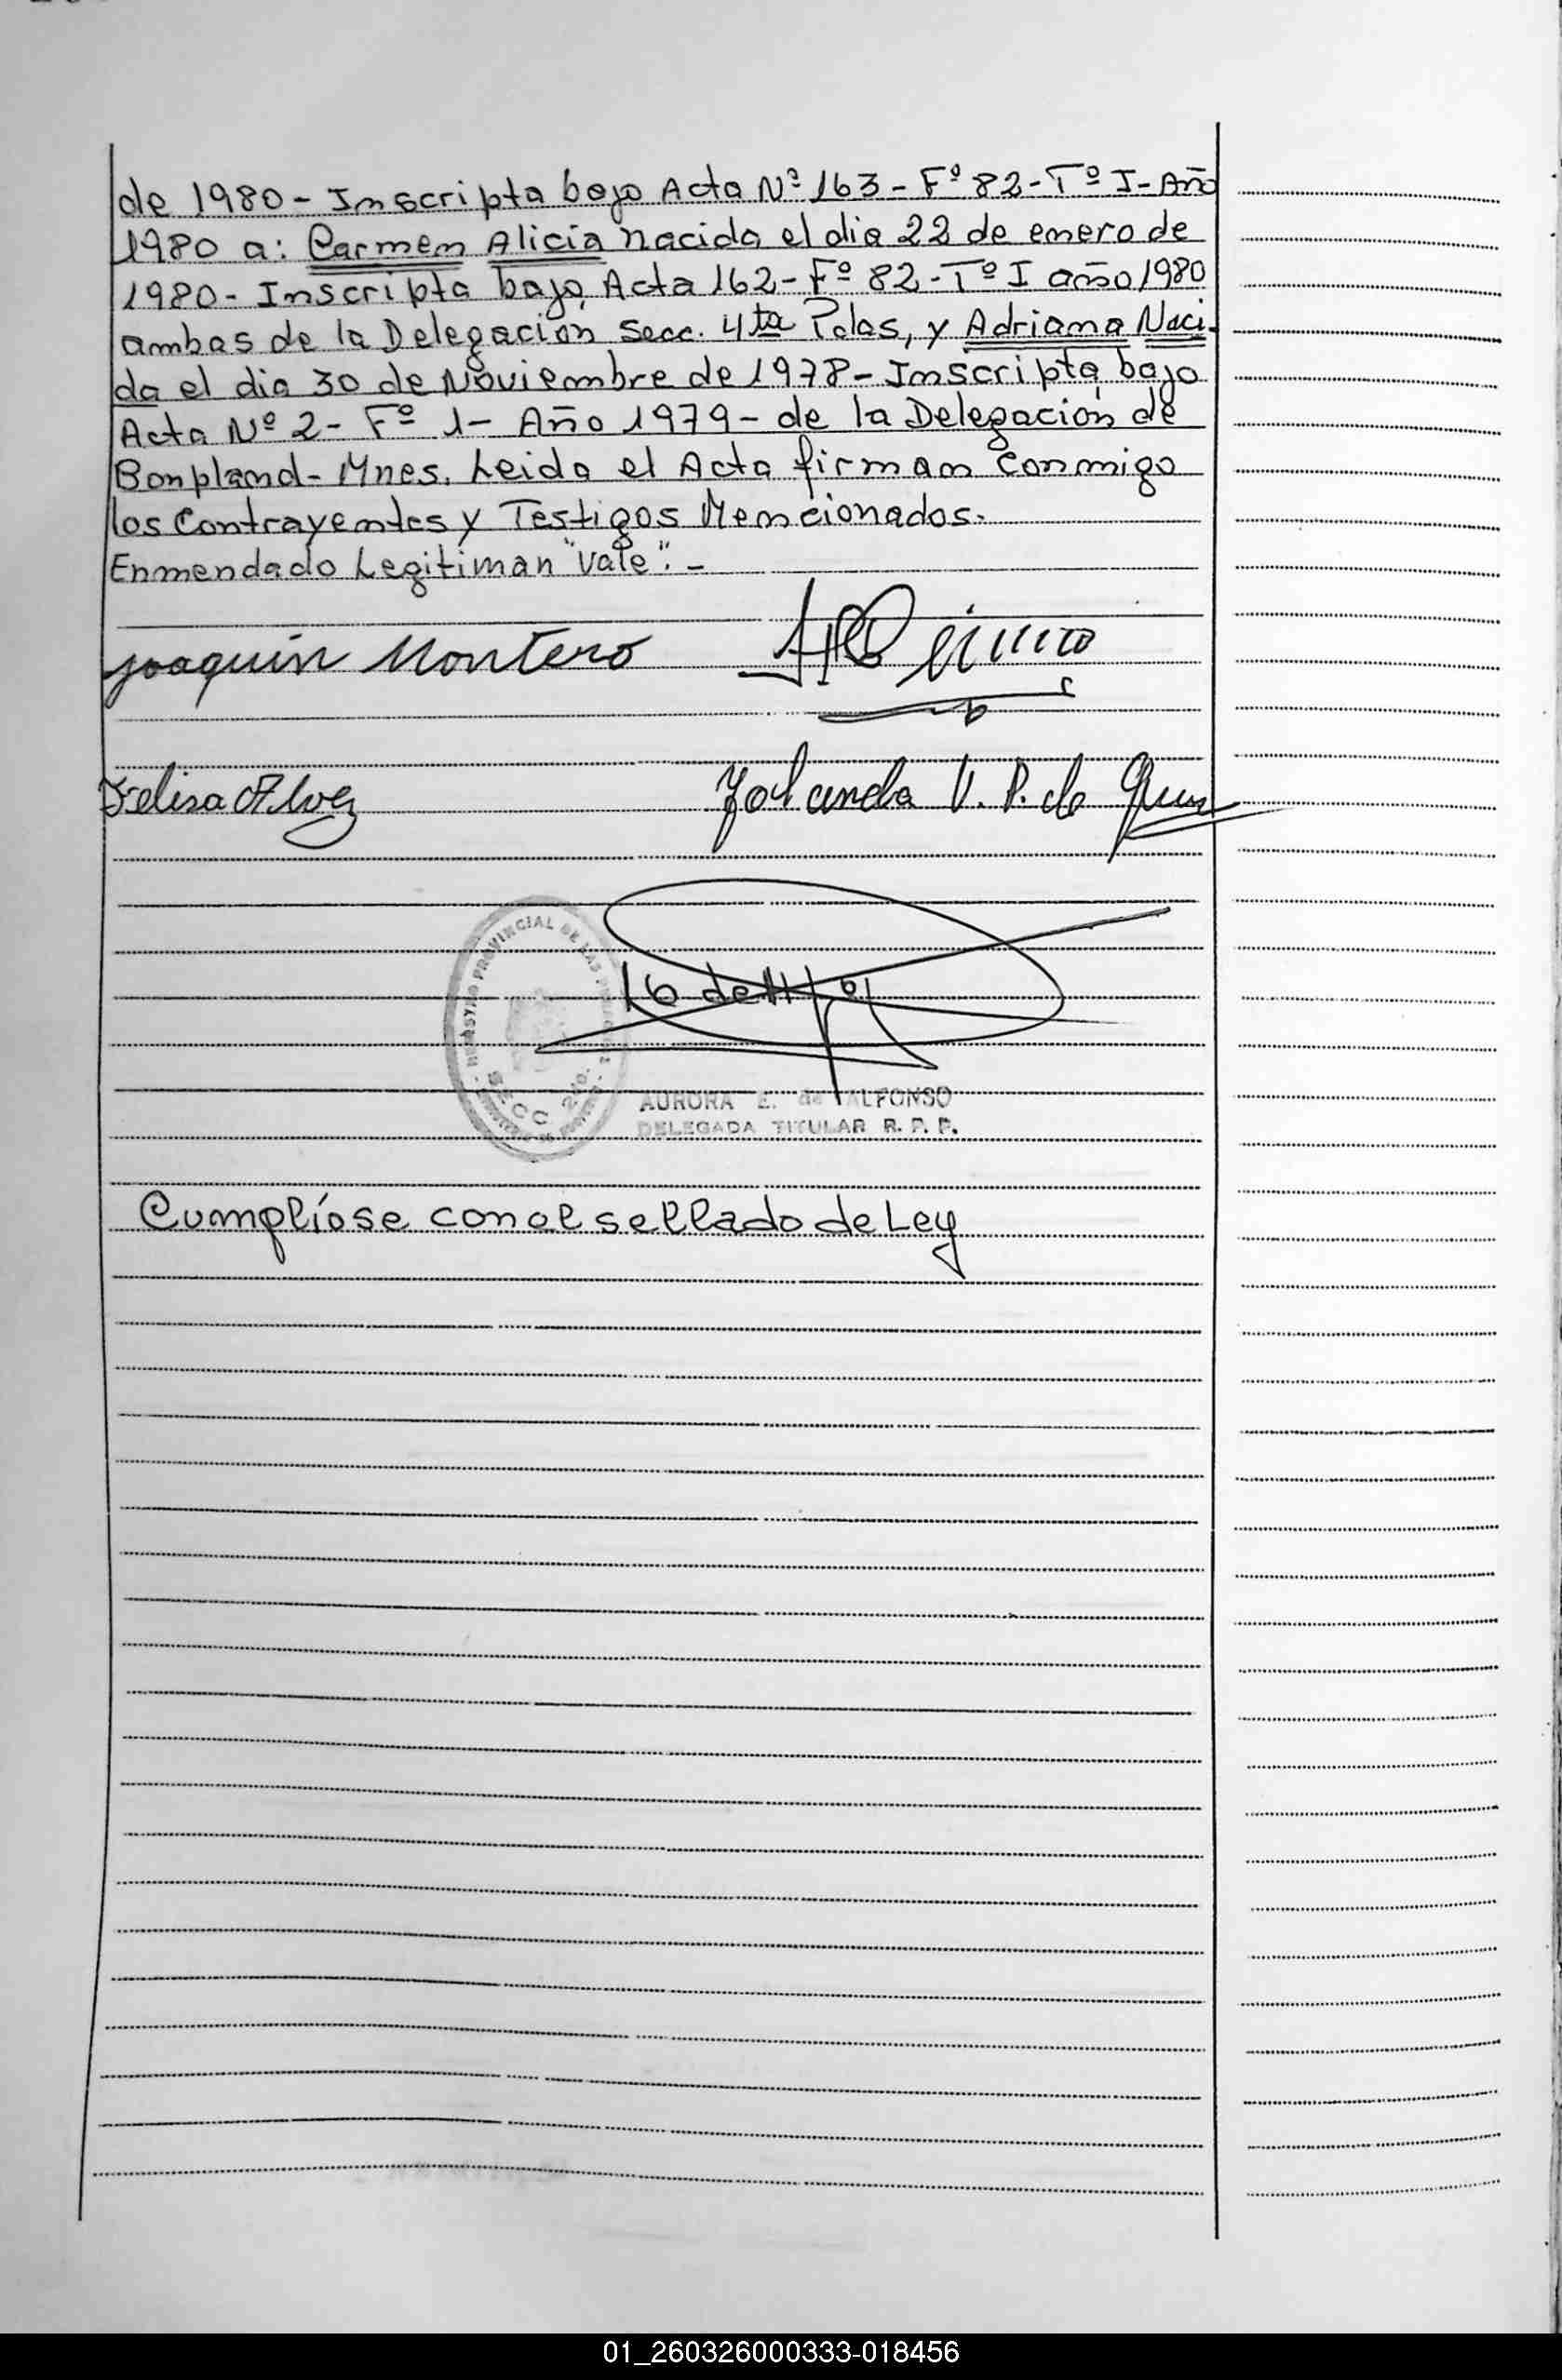 de 1980 - Inscripta bajo Acta Nº 163 - Fº 82 - Tº I - Año
1980 a: Carmen Alicia nacida el dia 22 de enero de
1980 - Inscripta bajo Acta 162 - Fº 82 - Tº I año 1980
ambas de la Delegación Secc. 4ta Pdas, y Adriana Naci-
da el dia 30 de Noviembre de 1978 - Inscripta bajo
Acta Nº 2 - Fº 1 - Año 1979 - de la Delegación de
Bonpland - Mnes. Leida el Acta firman Conmigo
los Contrayentes y Testigos Mencionados.
Enmendado Legitiman "vale". -
Joaquin Montero
Felisa Alvez
Yolanda V. P. de
REGISTRO PROVINCIAL DE LAS PERSONAS
SECC 2da.
AURORA E. de ALFONSO
DELEGADA TITULAR R. P. P.
Cumplíose con el sellado de Ley
01_260326000333-018456